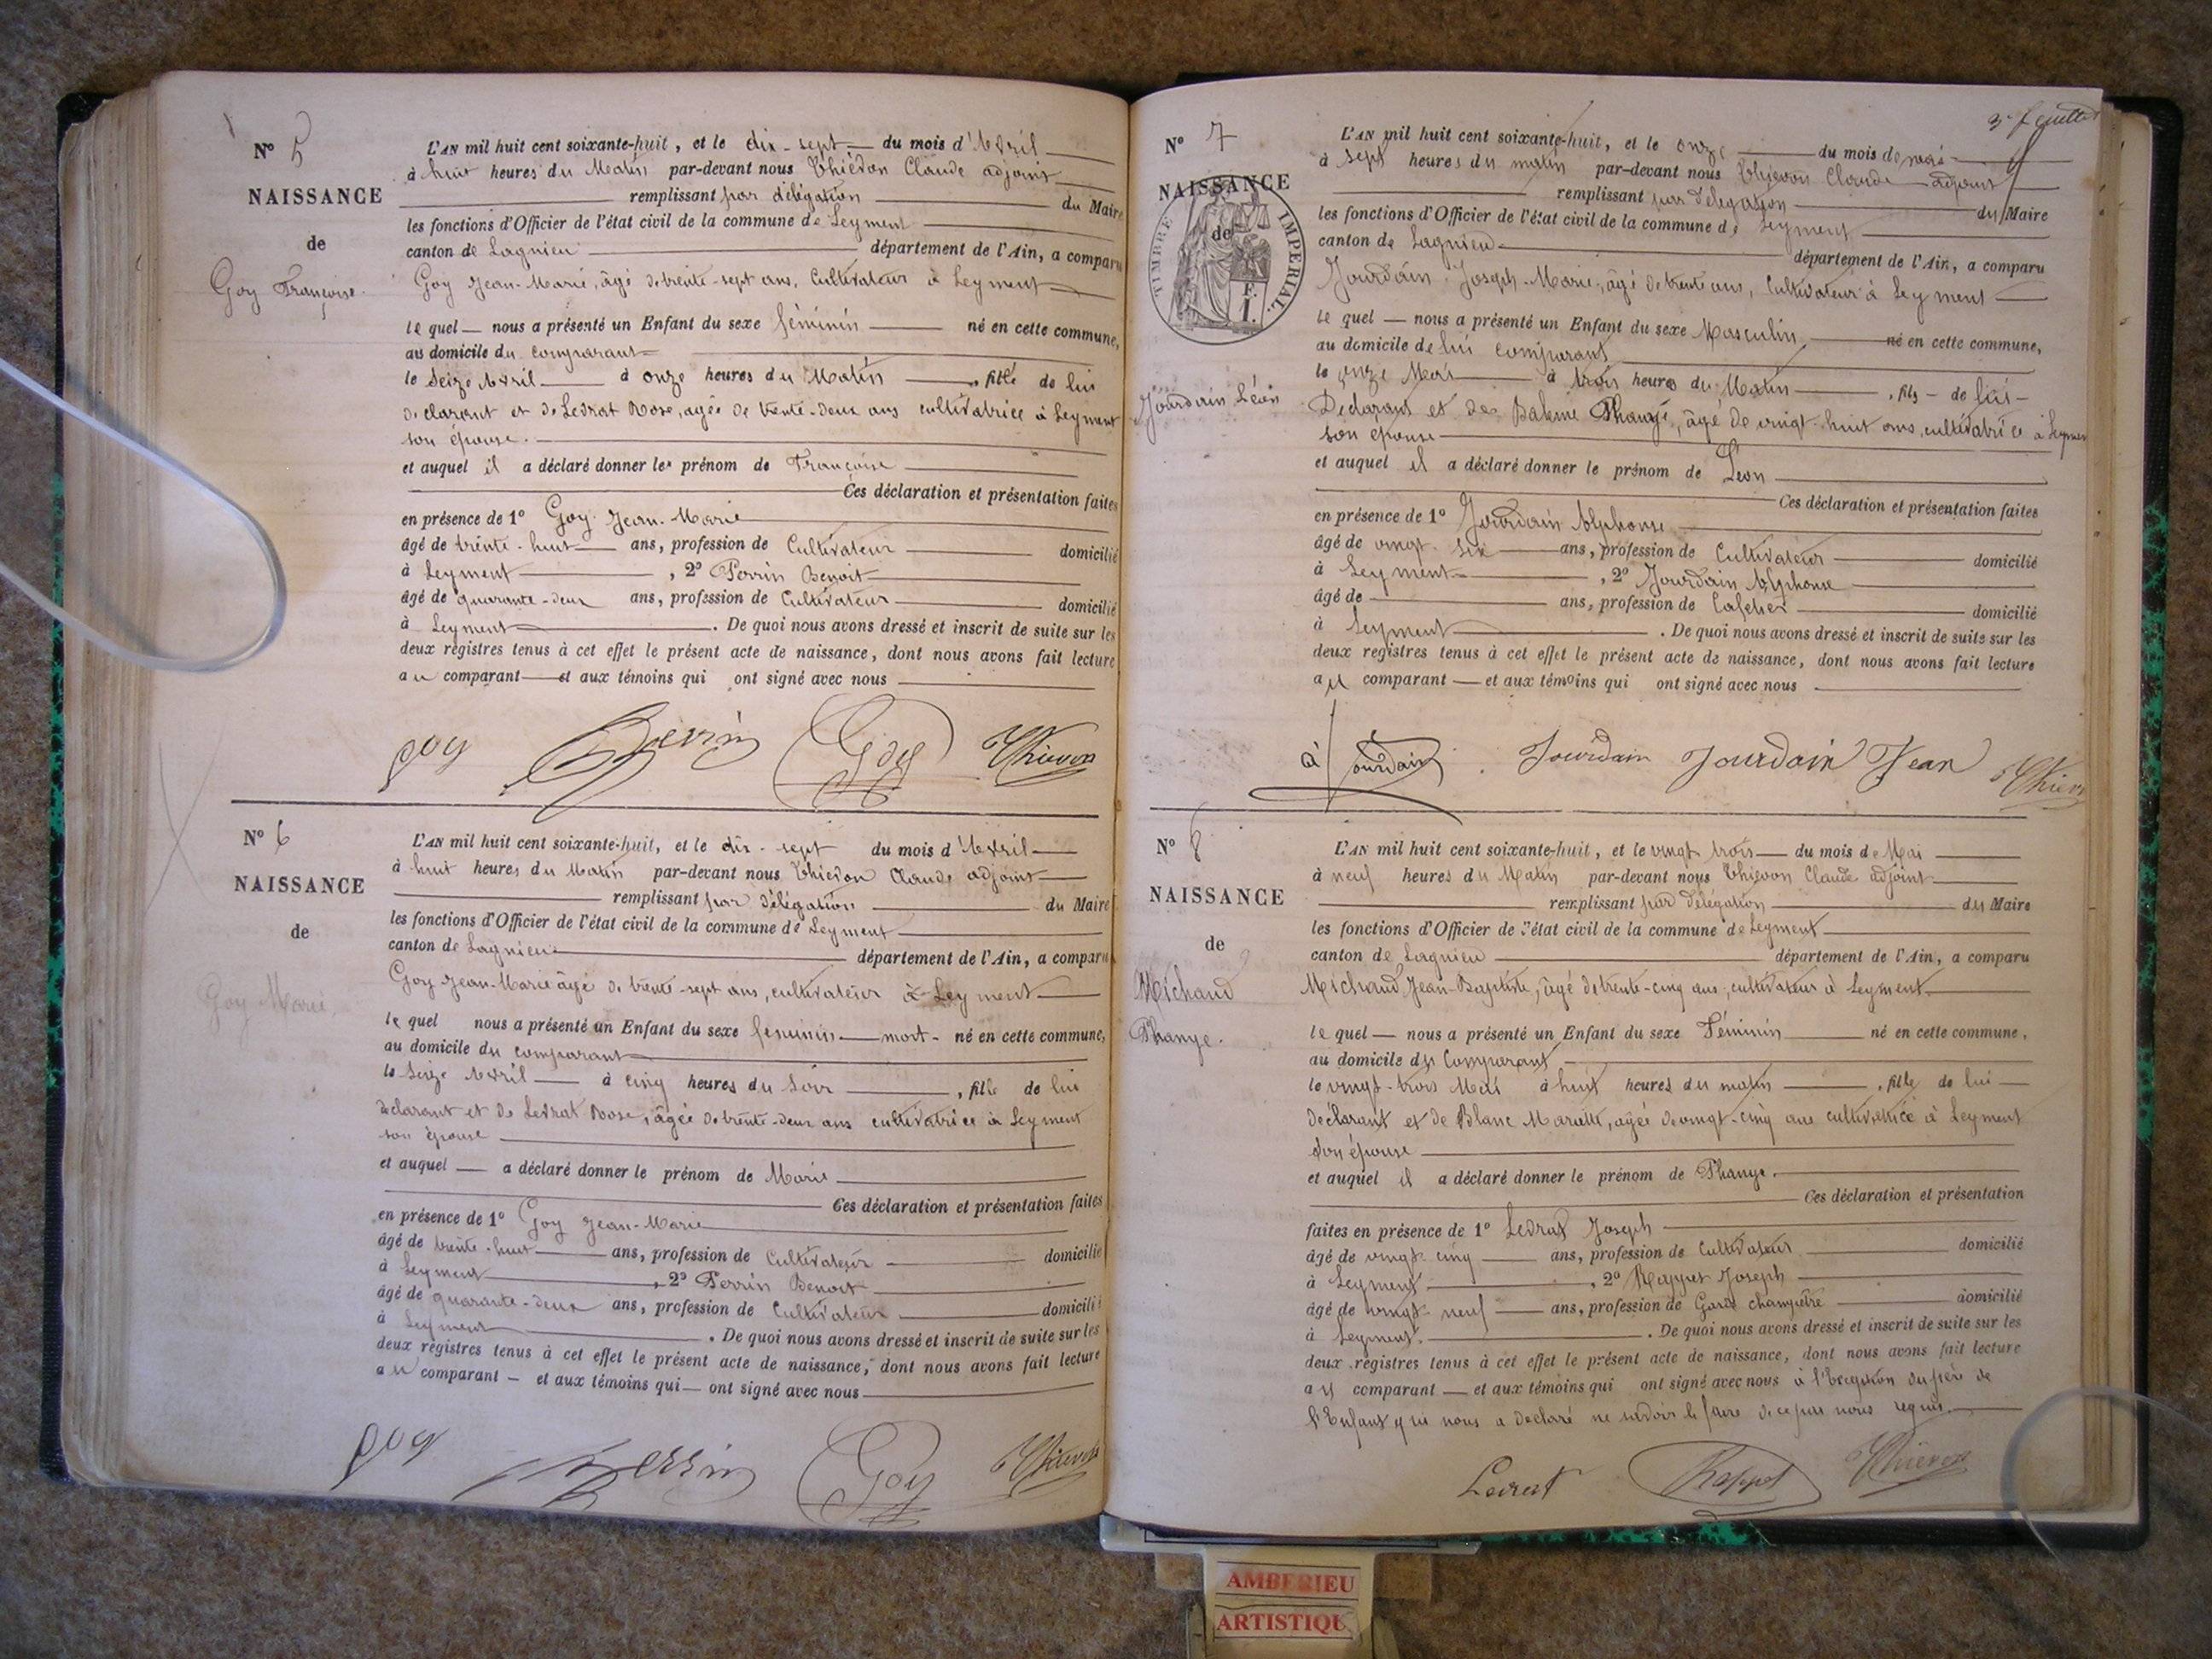 N° 5
NAISSANCE
de
Goy Françoise.
L'AN mil huit cent soixante-huit, et le dix-sept du mois d'Avril
à huit heures du Matin par-devant nous Thiévon Claude adjoint
remplissant par délégation du Maire
les fonctions d'Officier de l'état civil de la commune de Leyment
canton de Lagnieu département de l'Ain, a comparu
Goy Jean-Marie, âgé de trente-sept ans, Cultivateur à Leyment
le quel nous a présenté un Enfant du sexe féminin né en cette commune,
au domicile du comparant
le Seize Avril à onze heures du Matin, fille de lui
déclarant et de Levrat Rose, agée de trente-deux ans cultivatrice à Leyment
son épouse.
et auquel il a déclaré donner les prénom de Françoise
Ces déclaration et présentation faites
en présence de 1° Goy Jean-Marie
âgé de trente-huit ans, profession de Cultivateur domicilié
à Leyment, 2° Perrin Benoit
âgé de quarante-deux ans, profession de Cultivateur domicilié
à Leyment. De quoi nous avons dressé et inscrit de suite sur les
deux registres tenus à cet effet le présent acte de naissance, dont nous avons fait lecture
au comparant et aux témoins qui ont signé avec nous
goy Perrin Goy Thievon
N° 6
NAISSANCE
de
Goy Marie.
L'AN mil huit cent soixante-huit, et le dix-sept du mois d'Avril
à huit heures du Matin par-devant nous Thiévon Claude adjoint
remplissant par délégation du Maire
les fonctions d'Officier de l'état civil de la commune de Leyment
canton de Lagnieu département de l'Ain, a comparu
Goy Jean-Marie âgé de trente-sept ans, cultivateur à Leyment
le quel nous a présenté un Enfant du sexe féminin mort-né en cette commune,
au domicile du comparant
le Seize Avril à cinq heures du Soir, fille de lui
déclarant et de Levrat Rose, âgée de trente-deux ans cultivatrice à Leyment
son épouse
et auquel a déclaré donner le prénom de Marie
Ces déclaration et présentation faites
en présence de 1° Goy Jean-Marie
âgé de trente-huit ans, profession de Cultivateur domicilié
à Leyment, 2° Perrin Benoit
âgé de quarante-deux ans, profession de Cultivateur domicilié
à Leyment. De quoi nous avons dressé et inscrit de suite sur les
deux registres tenus à cet effet le présent acte de naissance, dont nous avons fait lecture
au comparant et aux témoins qui ont signé avec nous
goy Perrin Goy Thievon
3e feuillet
N° 7
NAISSANCE
de
TIMBRE IMPÉRIAL.
Jourdain Léon
L'AN mil huit cent soixante-huit, et le onze du mois de mai
à sept heures du matin par-devant nous Thiévon Claude adjoint
remplissant par délégation du Maire
les fonctions d'Officier de l'état civil de la commune de Leyment
canton de Lagnieu département de l'Ain, a comparu
Jourdain Joseph-Marie, âgé de trente ans, Cultivateur à Leyment
le quel nous a présenté un Enfant du sexe Masculin né en cette commune,
au domicile de lui comparant
le onze Mai à trois heures du Matin, fils de lui
Déclarant et de Phanye, âgé de vingt-huit ans, cultivatrice à Leyment
son épouse
et auquel il a déclaré donner le prénom de Léon
Ces déclaration et présentation faites
en présence de 1° Jourdain Alphonse
âgé de vingt-six ans, profession de Cultivateur domicilié
à Leyment, 2° Jourdain Alphonse
âgé de ans, profession de Cafetier domicilié
à Leyment. De quoi nous avons dressé et inscrit de suite sur les
deux registres tenus à cet effet le présent acte de naissance, dont nous avons fait lecture
au comparant et aux témoins qui ont signé avec nous
a Jourdain Jourdain Jourdain Jean Thievon
N° 8
NAISSANCE
de
Michaud
Phanye.
L'AN mil huit cent soixante-huit, et le vingt trois du mois de Mai
à neuf heures du Matin par-devant nous Thiévon Claude adjoint
remplissant par délégation du Maire
les fonctions d'Officier de l'état civil de la commune de Leyment
canton de Lagnieu département de l'Ain, a comparu
Michaud Jean-Baptiste, âgé de trente-cinq ans, cultivateur à Leyment
le quel nous a présenté un Enfant du sexe Féminin né en cette commune,
au domicile du Comparant
le vingt-trois Mai à huit heures du matin, fille de lui
déclarant et de Blanc Mariette, agée de vingt-cinq ans cultivatrice à Leyment
son épouse
et auquel il a déclaré donner le prénom de Phanye.
Ces déclaration et présentation
faites en présence de 1° Levrat Joseph
âgé de vingt-cinq ans, profession de Cultivateur domicilié
à Leyment, 2° Rappet Joseph
âgé de vingt-neuf ans, profession de Garde champêtre domicilié
à Leyment. De quoi nous avons dressé et inscrit de suite sur les
deux registres tenus à cet effet le présent acte de naissance, dont nous avons fait lecture
au comparant et aux témoins qui ont signé avec nous à l'Exception du père de
l'Enfant qui nous a déclaré ne savoir le faire de ce par nous requis.
Levrat Rappet Thievon
AMBERIEU
ARTISTIQU